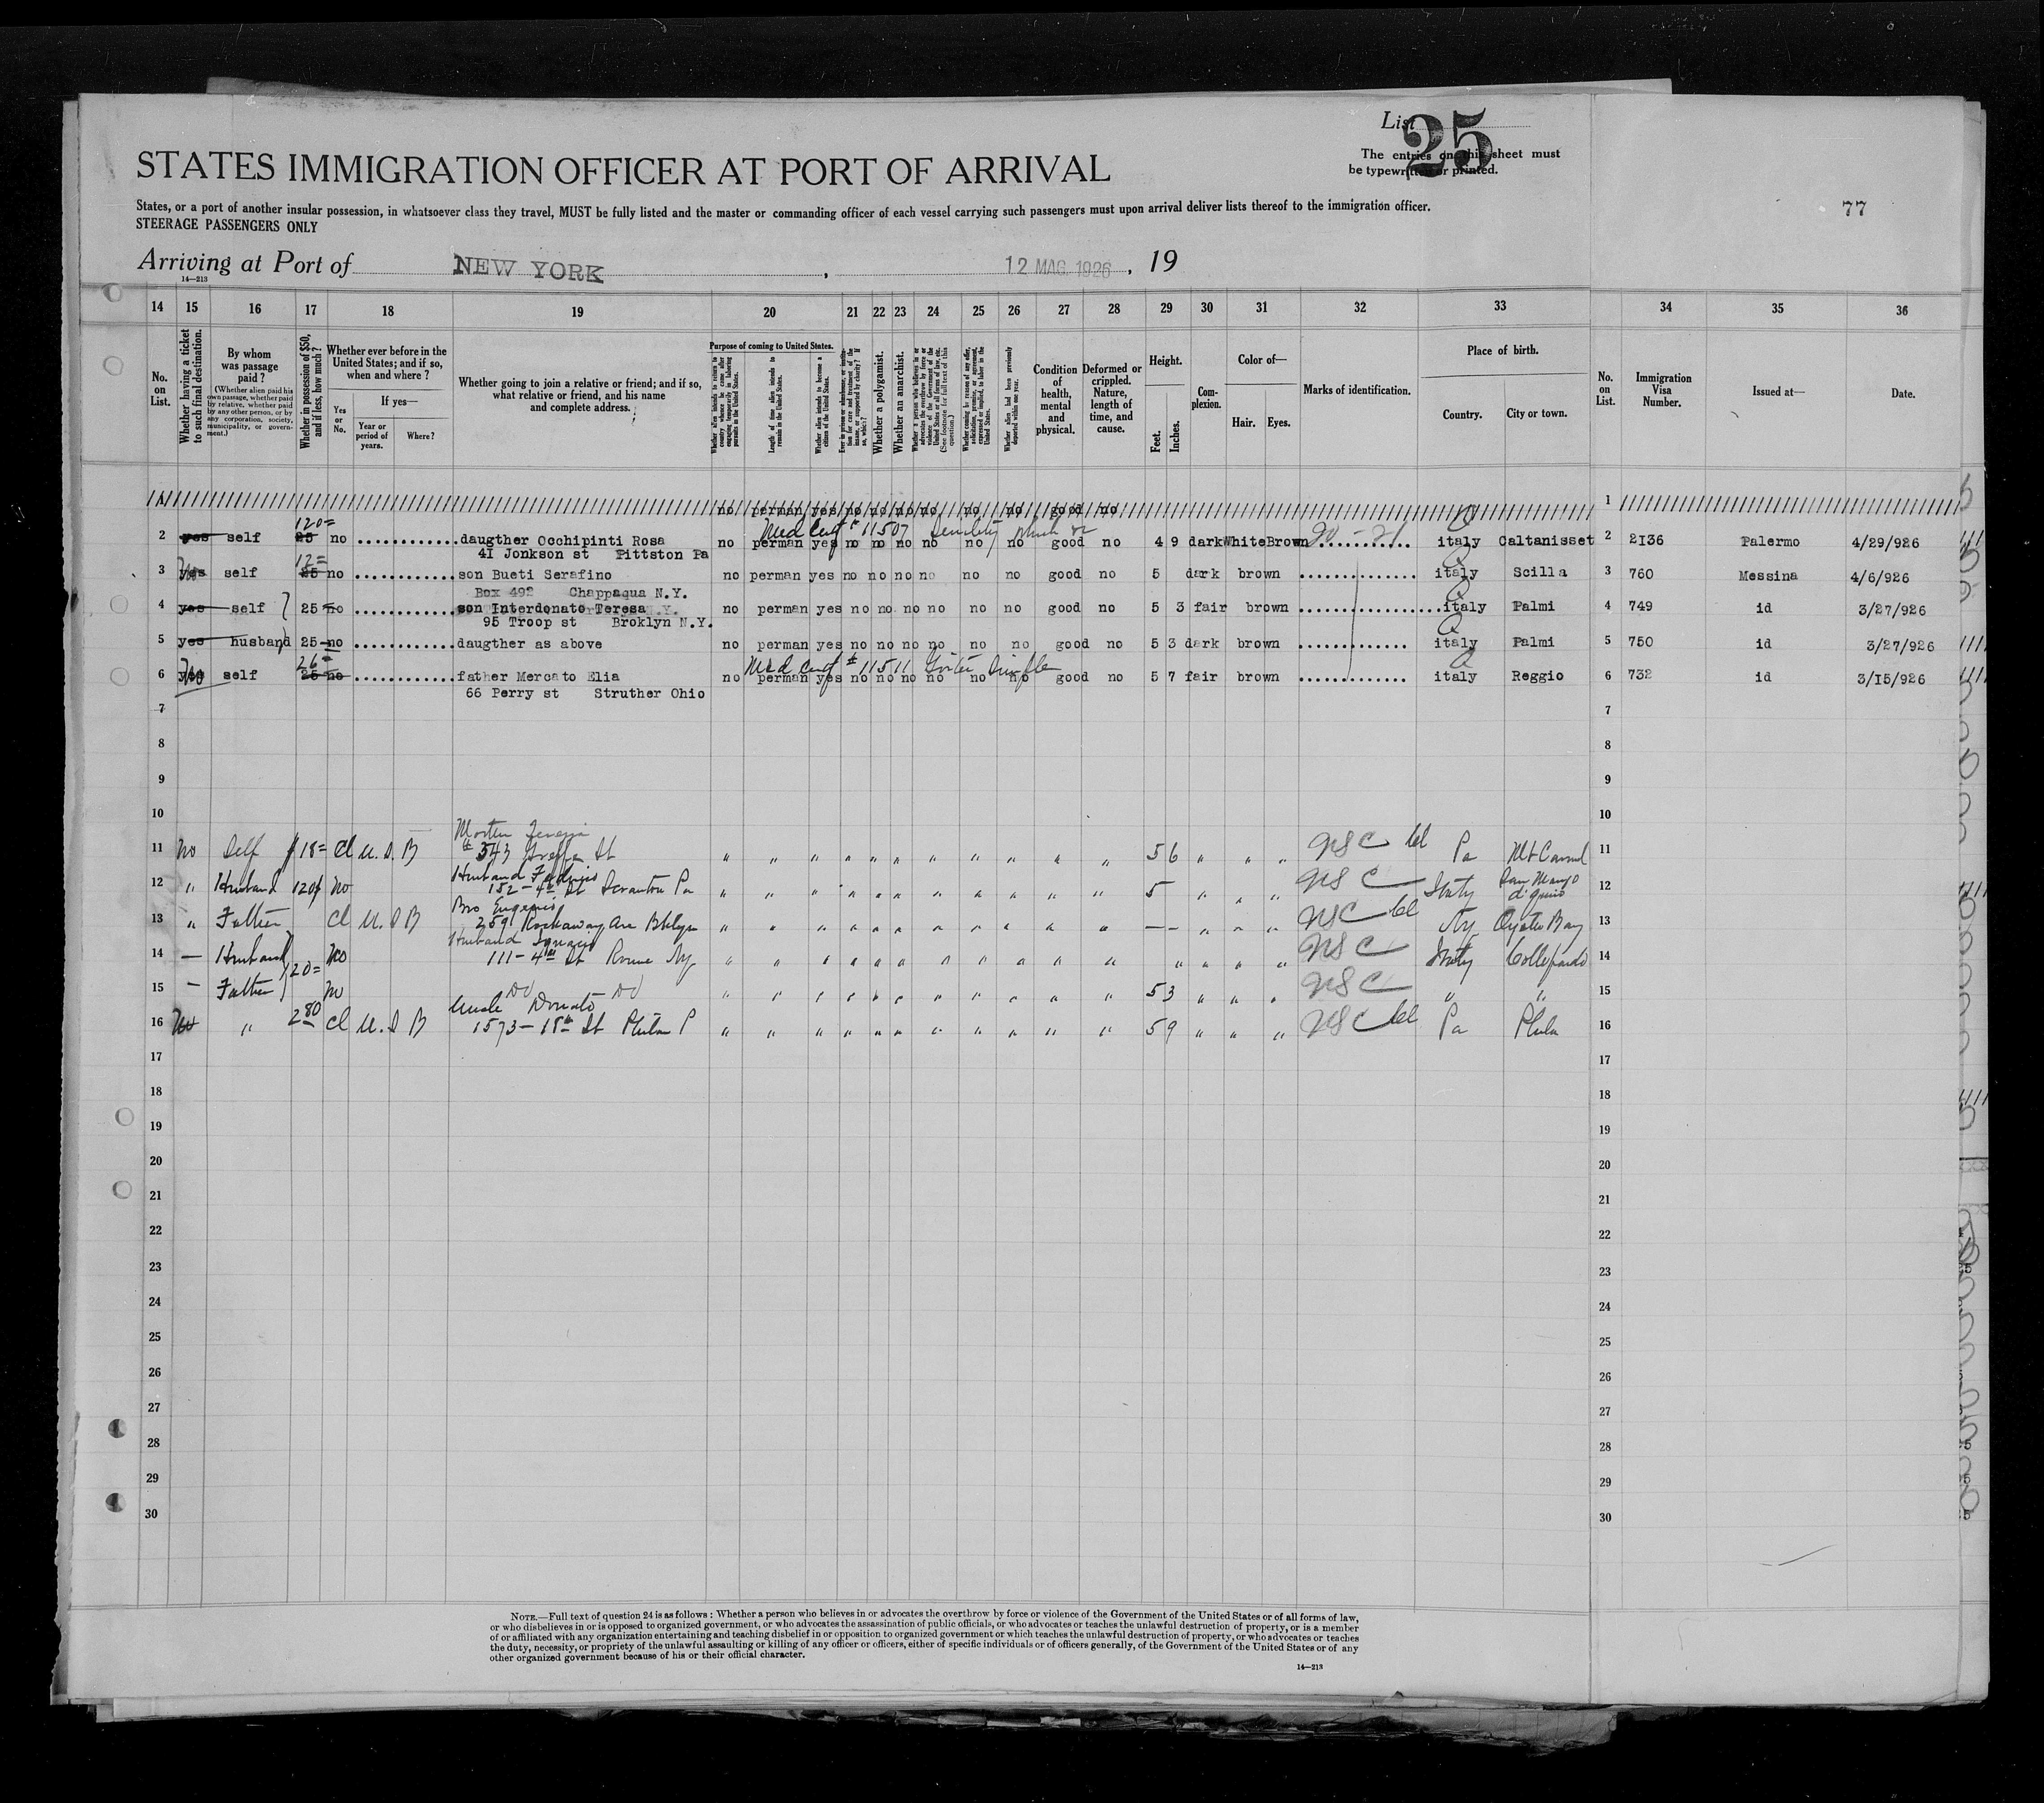 List 25
The entries on this sheet must
be typewritten or printed.
STATES IMMIGRATION OFFICER AT PORT OF ARRIVAL
77
States, or a port of another insular possession, in whatsoever class they travel, MUST be fully listed and the master or commanding officer of each vessel carrying such passengers must upon arrival deliver lists thereof to the immigration officer.
STEERAGE PASSENGERS ONLY
Arriving at Port of NEW YORK, 12 MAG. 1926, 19
14—213
14 15 16 17 18 19 20 21 22 23 24 25 26 27 28 29 30 31 32 33 34 35 36
No. on List.
Whether having a ticket to such final destination.
By whom was passage paid?
(Whether alien paid his own passage, whether paid by relative, whether paid by any other person, or by any corporation, society, municipality, or government.)
Whether in possession of $50, and if less, how much?
Whether ever before in the United States; and if so, when and where?
Yes or No.
If yes—
Year or period of years.
Where?
Whether going to join a relative or friend; and if so, what relative or friend, and his name and complete address.
Purpose of coming to United States.
Whether alien intends to return to country whence he came after engaging temporarily in laboring pursuits in the United States.
Length of time alien intends to remain in the United States.
Whether alien intends to become a citizen of the United States.
Whether a polygamist.
Whether an anarchist.
Whether alien had been previously deported within one year.
Condition of health, mental and physical.
Deformed or crippled. Nature, length of time, and cause.
Height.
Feet. Inches.
Complexion.
Color of—
Hair. Eyes.
Marks of identification.
Place of birth.
Country. City or town.
No. on List.
Immigration Visa Number.
Issued at—
Date.
1 no perman yes no no no no no no good no 1
120=
Med Cert # 11507 Senility
2 yes self 25 no daugther Occhipinti Rosa no perman yes no no no no no no good no 4 9 dark White Brown italy Caltanisset 2 2136 Palermo 4/29/926
41 Jonkson st Pittston Pa
12=
3 yes self 25 no son Bueti Serafino no perman yes no no no no no no good no 5 dark brown italy Scilla 3 760 Messina 4/6/926
Box 492 Chappaqua N.Y.
4 yes self 25 no son Interdonato Teresa no perman yes no no no no no no good no 5 3 fair brown italy Palmi 4 749 id 3/27/926
95 Troop st Broklyn N.Y.
5 yes husband 25 no daugther as above no perman yes no no no no no no good no 5 3 dark brown italy Palmi 5 750 id 3/27/926
26=
Med Cert # 11511 Goiter Simple
6 yes No self 25 no father Mercato Elia no perman yes no no no no no no good no 5 7 fair brown italy Reggio 6 732 id 3/15/926
66 Perry st Struther Ohio
7 7
8 8
9 9
10 10
11 No Self $18= Cl U.S B 343 St " " " " " " " " " " " 5 6 " " " USC Pa Mt Carmel 11
Husband
12 " Husband 120 No 152-4th St Scranton Pa " " " " " " " " " " " 5 " " " USC Italy San Mango d'Aquino 12
Bro Eugenio
13 " Father Cl U.S B 259 Rockaway Ave Bklyn " " " " " " " " " " " — — " " " USC Ny Oyster Bay 13
Husband Ignazio
14 — Husband 120= No 111-4th St Rome Ny " " " " " " " " " " " " " " " USC Italy Collepardo 14
15 — Father No Do Do " " " " " " " " " " " 5 3 " " " USC " " 15
Uncle Donato
16 No " 280 Cl U.S B 1573-18th St Phila P " " " " " " " " " " " 5 9 " " " USC Pa Phila 16
17 17
18 18
19 19
20 20
21 21
22 22
23 23
24 24
25 25
26 26
27 27
28 28
29 29
30 30
NOTE.—Full text of question 24 is as follows: Whether a person who believes in or advocates the overthrow by force or violence of the Government of the United States or of all forms of law,
or who disbelieves in or is opposed to organized government, or who advocates the assassination of public officials, or who advocates or teaches the unlawful destruction of property, or is a member
of or affiliated with any organization entertaining and teaching disbelief in or opposition to organized government or which teaches the unlawful destruction of property, or who advocates or teaches
the duty, necessity, or propriety of the unlawful assaulting or killing of any officer or officers, either of specific individuals or of officers generally, of the Government of the United States or of any
other organized government because of his or their official character.
14—213